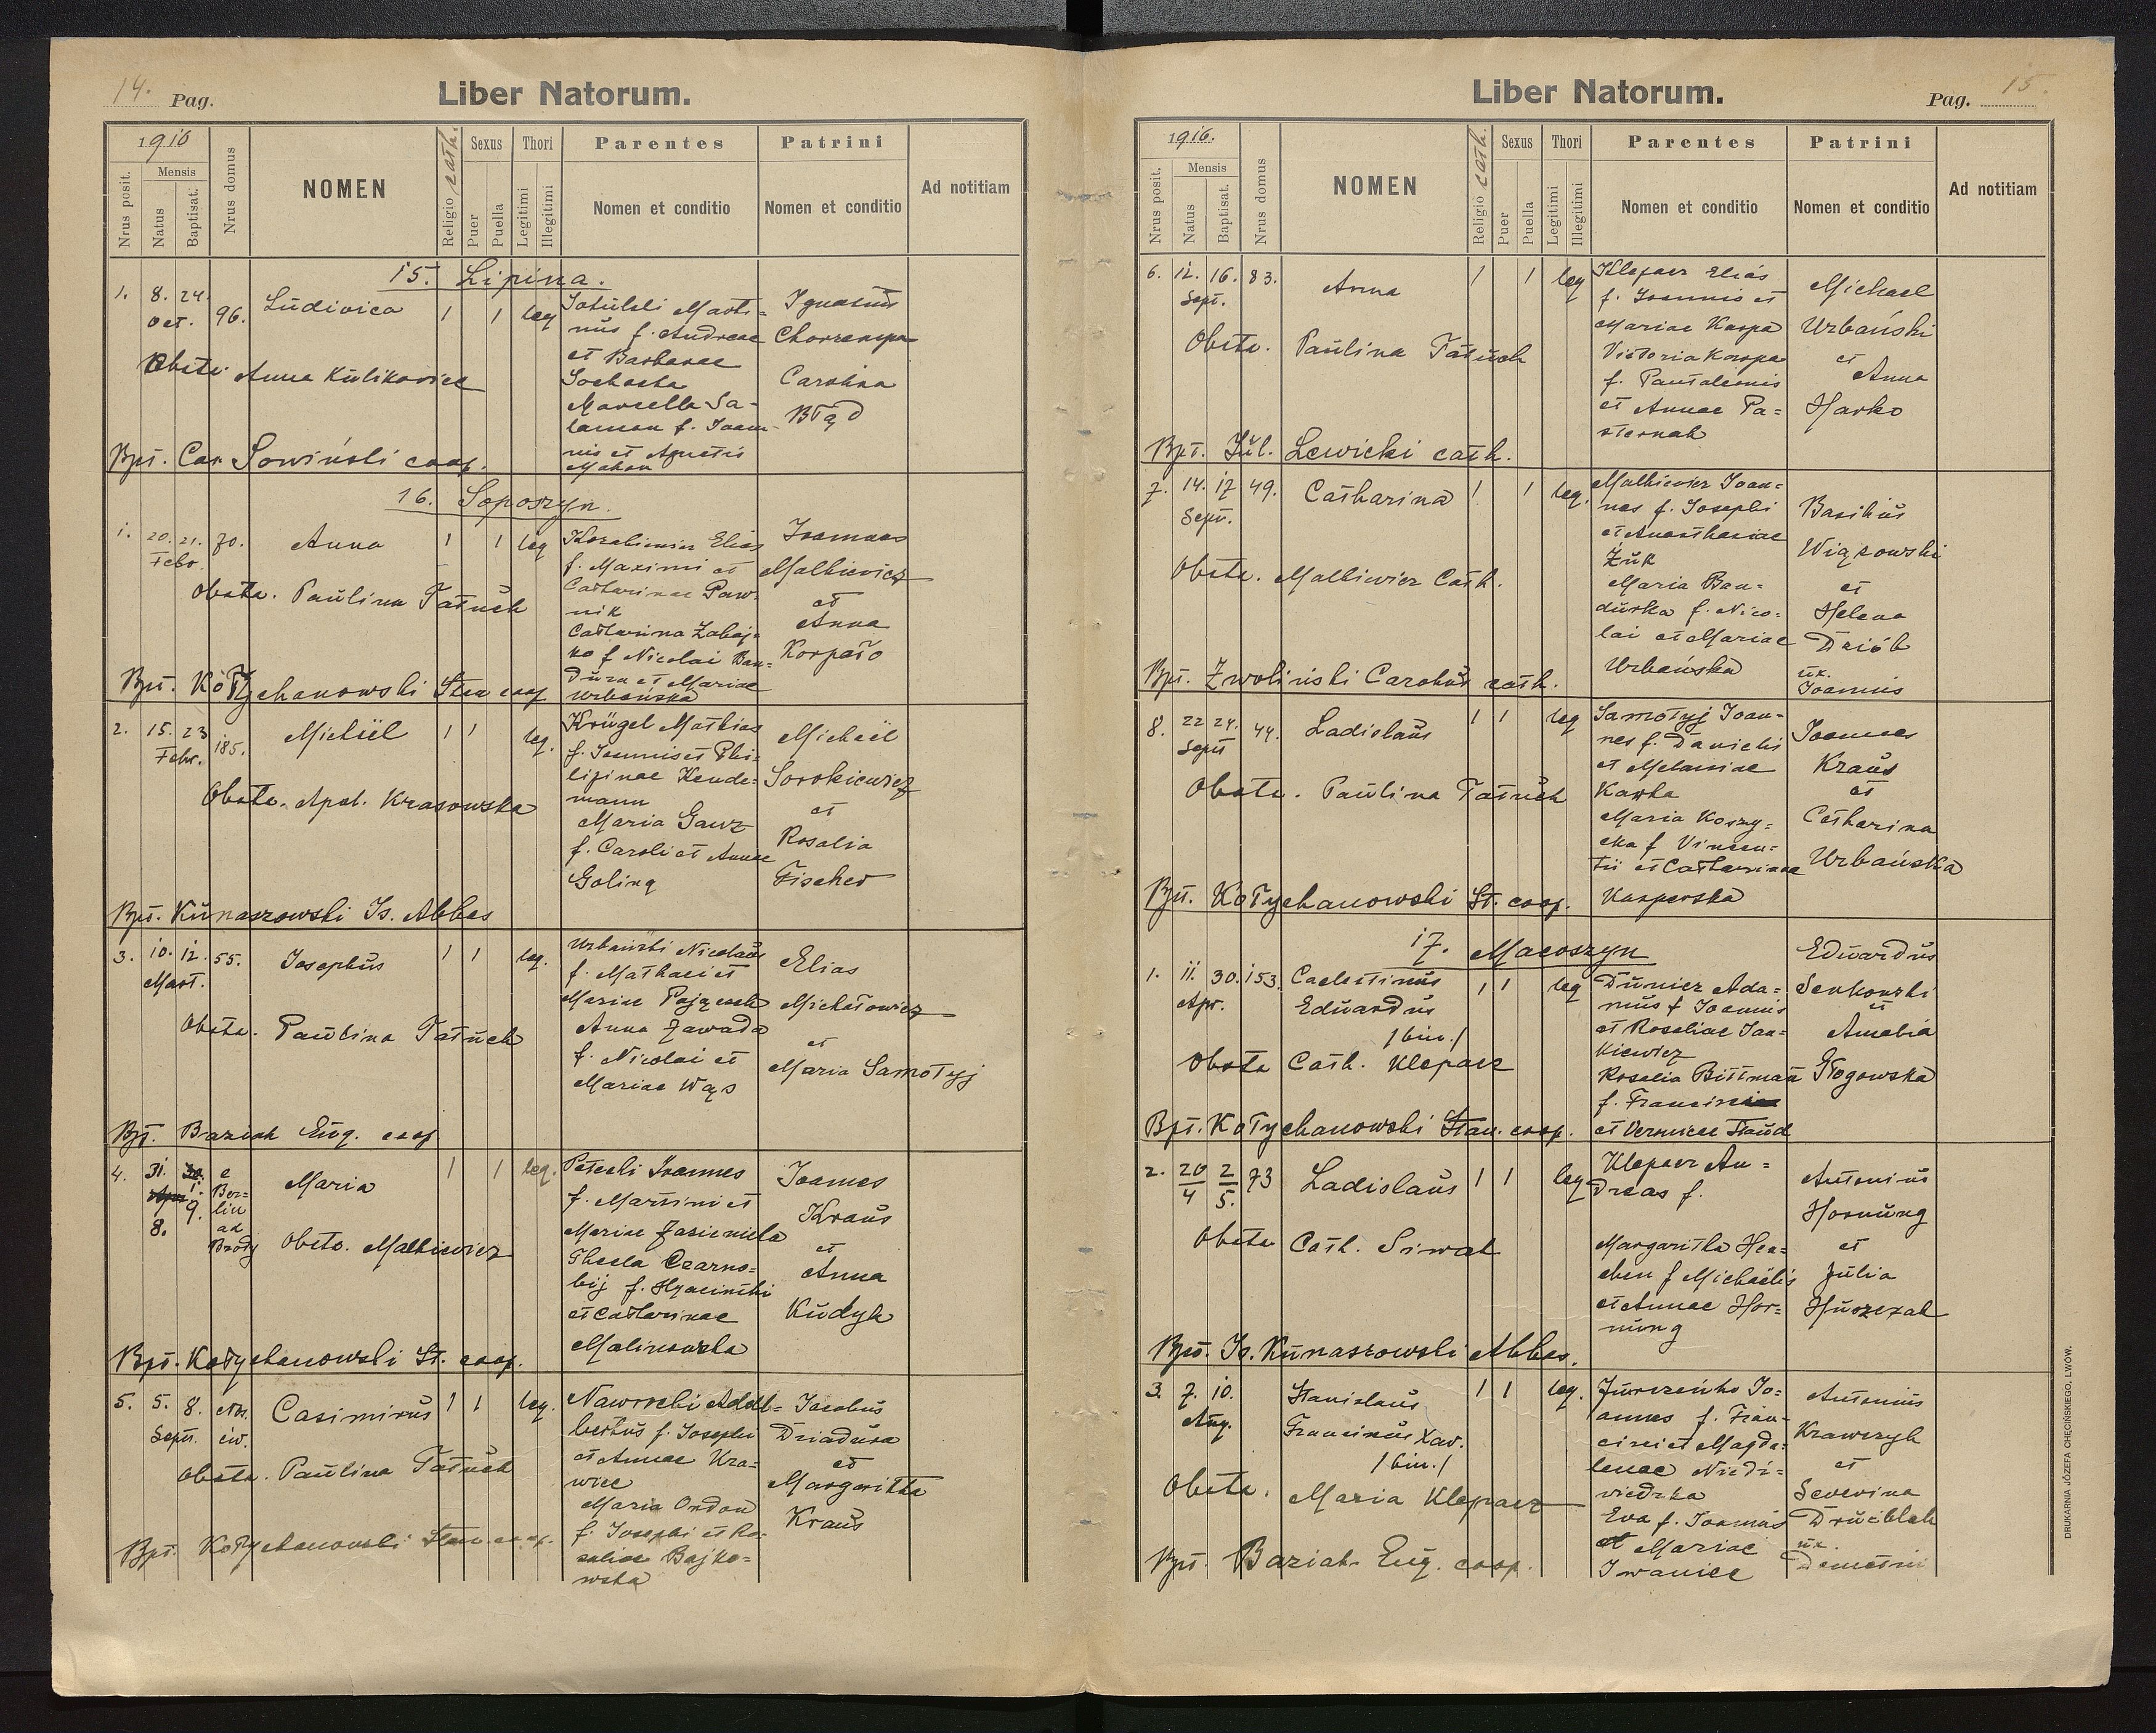 14. Pag.
Liber Natorum.
1916
Nrus posit.
Mensis
Natus
Baptisat.
Nrus domus
NOMEN
Religio cath.
Sexus
Puer
Puella
Thori
Legitimi
Illegitimi
Parentes
Nomen et conditio
Patrini
Nomen et conditio
Ad notitiam
15. Lipina.
1. 8. 24. Oct. 96. Ludivica 1 1 leg
Martinus f. Andreae
et Barbarae
Marcella Salamon f. Joannis et Agnetis
Ignatius
Carolina
Błąd
Obste. Anna Kulikovice
Bpt. Car. Sowiński coop.
16. Soposzyn.
1. 20. 21. Febr. 70. Anna 1 1 leg
Elias
f. Maximi et
Catharinae Pawnik
Catharina Zabajko f Nicolai Bandura et Mariae
Urbańska
Joannes
Malkiewicz
et
Anna
Korpało
Obste. Paulina Tatuch
Bpt. Kołychanowski Stan coop
2. 15. 23 Febr. 185. Michäel 1 1 leg.
Krügel Mathias
f. Joannis et Philipinae Hendemann
Maria Gawz
f. Caroli et Annae
Goling
Michäel
Sorokiewicz
et
Rosalia
Fischer
Obste. Apol. Krasowska
Bpt. Kunaszowski Is. Abbas
3. 10. 12. Mart. 55. Josephus 1 1 leg.
Urbański Nicolaus
f. Mathaei et
Mariae Pajączek
Anna Zawada
f. Nicolai et
Mariae Wąs
Elias
Michałowicz
et
Maria Samotyj
Obste. Paulina Tatuch
Bpt. Baziak Eug. coop
4. 31. 8. 1. 9. e Berlin ad Brody Maria 1 1 leg.
Petecki Joannes
f. Martini et
Mariae Zasieniela
Thecla Czarnobij f. Hyacinthi
et Catharinae
Malinowska
Joannes
Kraus
et
Anna
Kudyk
Obste. Malkiewicz
Bpt. Kołychanowski St. coop.
5. 5. 8. Sept. Nr. civ. Casimirus 1 1 leg.
Nawrocki Adalbertus f. Josephi
et Annae Krawiec
Maria Ordon
f. Josephi et Rosaliae Bajkowska
Jacobus
Dziadura
et
Margaritha
Kraus
Obste. Paulina Tatuch
Bpt. Kołychanowski Stan. coop.
Liber Natorum.
Pag. 15.
1916.
Nrus posit.
Mensis
Natus
Baptisat.
Nrus domus
NOMEN
Religio cath.
Sexus
Puer
Puella
Thori
Legitimi
Illegitimi
Parentes
Nomen et conditio
Patrini
Nomen et conditio
Ad notitiam
6. 12. 16. Sept. 83. Anna 1 1 leg
Klepacz Elias
f. Joannis et
Mariae Karpa
Victoria Karpa
f. Pantaleonis
et Annae Pasternak
Michael
Urbański
et
Anna
Harko
Obste. Paulina Tatuch
Bpt. Jul. Lewicki cath.
7. 14. 17 Sept. 49. Catharina 1 1 leg.
Malkiewicz Joannes f. Josephi
et Anasthasiae
Żuk
Maria Bandurka f. Nicolai et Mariae
Urbańska
Basilius
Wiązowski
et
Helena
Dziób
ux.
Joannis
Obste. Malkiewicz Cath.
Bpt. Zwoliński Carolus cath.
8. 22 24. Sept 44. Ladislaus 1 1 leg
Samotyj Joannes f. Danielis
et Melaniae
Kawka
Maria f Vincentii et Catharinae
Kasperska
Joannes
Kraus
et
Catharina
Urbańska
Obste. Paulina Tatuch
Bpt. Kołychanowski St. coop.
17. Macoszyn
1. 11. 30. Apr. 153. Caelestinus
Eduardus
/bin./
1 1 leg
Dunicz Adamus f Joannis
et Rosaliae Jankiewicz
Rosalia Bittmann
f. Francisci
et Veronicae Staud
Edwardus
Senkowski
et
Amalia
Głogowska
Obste Cath. Klepacz
Bpt. Kołychanowski Stan. coop.
2. 20/4 2/5. 73 Ladislaus 1 1 leg
Klepacz Andreas f.
Margaritha f Michaëlis
et Annae Hornung
Antonius
Hornung
et
Julia
Huszczak
Obste Cath. Siwak
Bpt. Is. Kunaszowski Abbas.
3. 7. 10. Aug. Stanislaus
Franciscus Xav.
/bin./
1 1 leg.
Joannes f. Francisci et Magdalenae Niedzviedzka
Eva f. Joannis
et Mariae
Iwaniec
Antonius
Krawczyk
et
Severina
ux.
Demetrii
Obste. Maria Klepacz
Bpt. Baziak Eug. coop.
DRUKARNIA JÓZEFA CHĘCIŃSKIEGO, LWÓW.